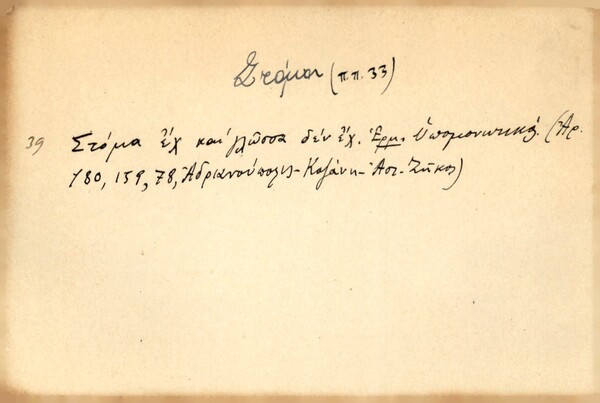 Στόμα (π.π. 33)
39 Στόμα ἔχ καὶ γλῶσσα δέν ἔχ. Ἑρμ. Ὑπομονητικά. (Ἀρ.
780, 159, 78, Ἀδριανούπολις - Κοζάνη - Ἀστ. Ζῆκος)